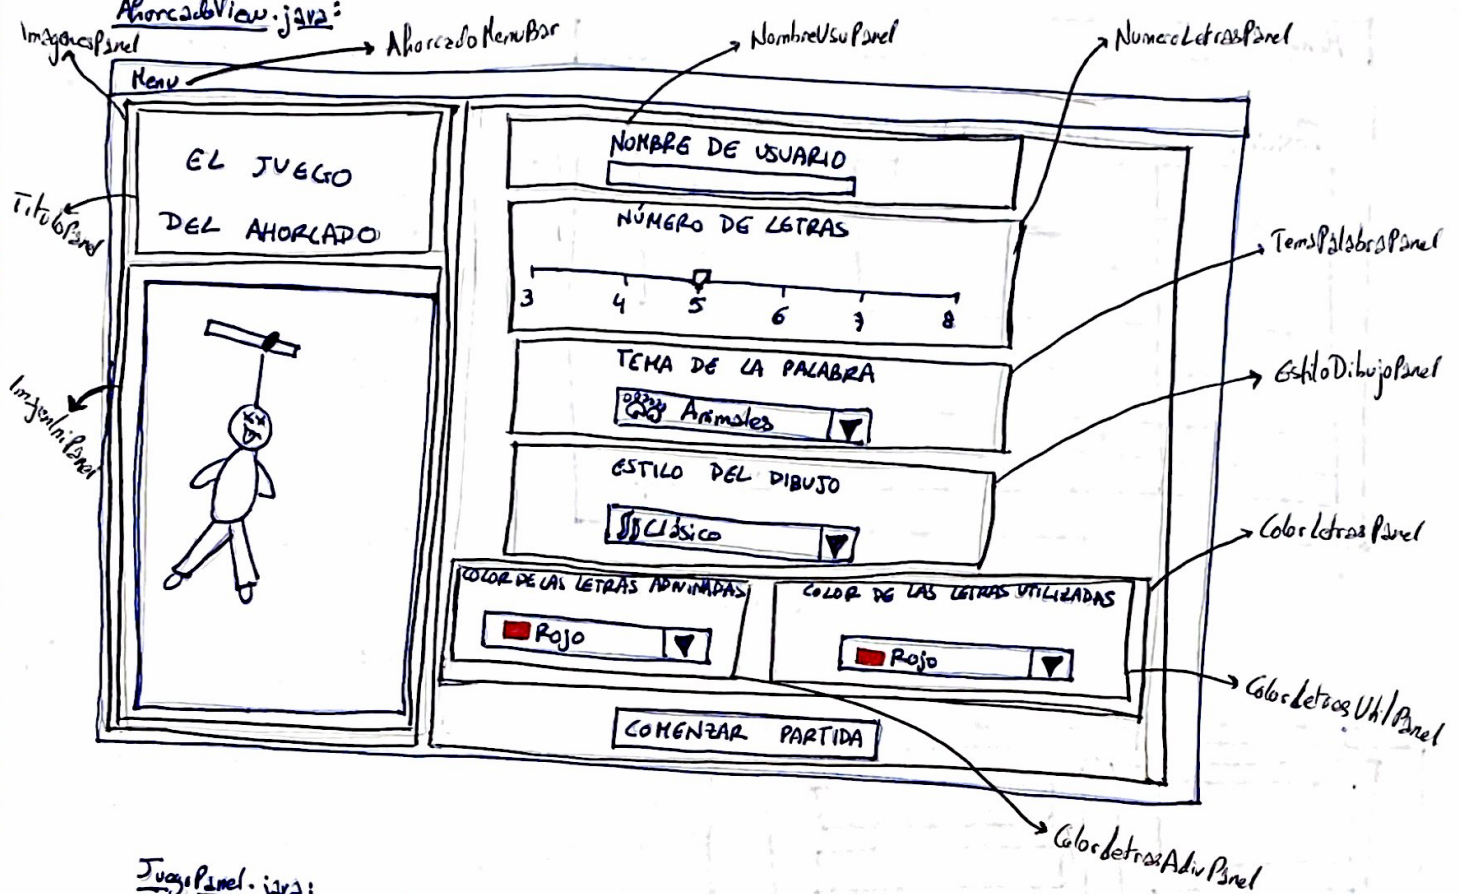 AhorcadoView.java:
ImagenesPanel
AhorcadoMenuBar
NombreUsuPanel
NumeroLetrasPanel
Menu
EL JUEGO
DEL AHORCADO
TituloPanel
ImagenIniPanel
NOMBRE DE USUARIO
NÚMERO DE LETRAS
3 4 5 6 7 8
TemaPalabraPanel
TEMA DE LA PALABRA
Animales
EstiloDibujoPanel
ESTILO DEL DIBUJO
Clásico
ColorLetrasPanel
COLOR DE LAS LETRAS ADIVINADAS
Rojo
COLOR DE LAS LETRAS UTILIZADAS
Rojo
ColorLetrasUtilPanel
COMENZAR PARTIDA
ColorLetrasAdivPanel
JuegoPanel.java: